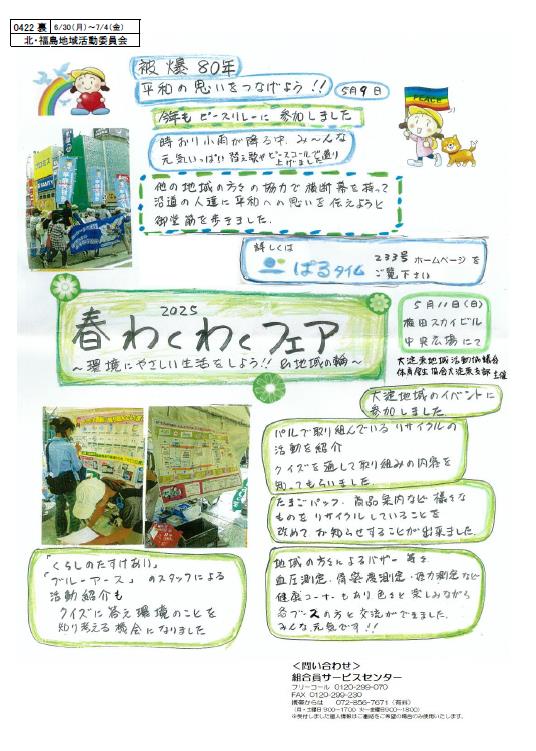 0422 裏 6/30(月)～7/4(金)
北・福島地域活動委員会
被爆80年
平和の思いをつなげよう!!
5月9日
PEACE
今年も ピースリレーに 参加しました
時おり小雨が降る中、み～んな
元気いっぱい 替え歌やピースコールで盛り
上げました
他の地域の方々の協力で横断幕を持って
沿道の人達に平和への思いを伝えようと
御堂筋を歩きました.
詳しくは
ぱるタイム
233号 ホームページを
ご覧下さい
2025
春わくわくフェア
～環境にやさしい生活をしよう!! &地域の輪～
5月11日(日)
梅田スカイビル
中央広場にて
大淀東地域活動協議会
体育厚生協会大淀東支部 主催
大淀地域のイベントに
参加しました
パルで取り組んでいるリサイクルの
活動を紹介
クイズを通して取り組みの内容を
知ってもらいました
たまごパック、商品案内など様々な
ものをリサイクルしていることを
改めてお知らせすることが出来ました.
「くらしのたすけあい」
「ブルーアース」のスタッフによる
活動紹介も
クイズに答え環境のことを
知り考える機会になりました
地域の方々によるバザー等を
血圧測定、骨密度測定、握力測定など
健康コーナーもあり色々と楽しみながら
各ブースの方と交流ができました.
みんな元気です!!
＜問い合わせ＞
組合員サービスセンター
フリーコール 0120-299-070
FAX 0120-299-230
携帯からは 072-856-7671（有料）
（月・土曜日 9:00～17:00 火～金曜日9:00～18:00）
※受付しました個人情報はご連絡をご希望の場合のみ使用いたします。